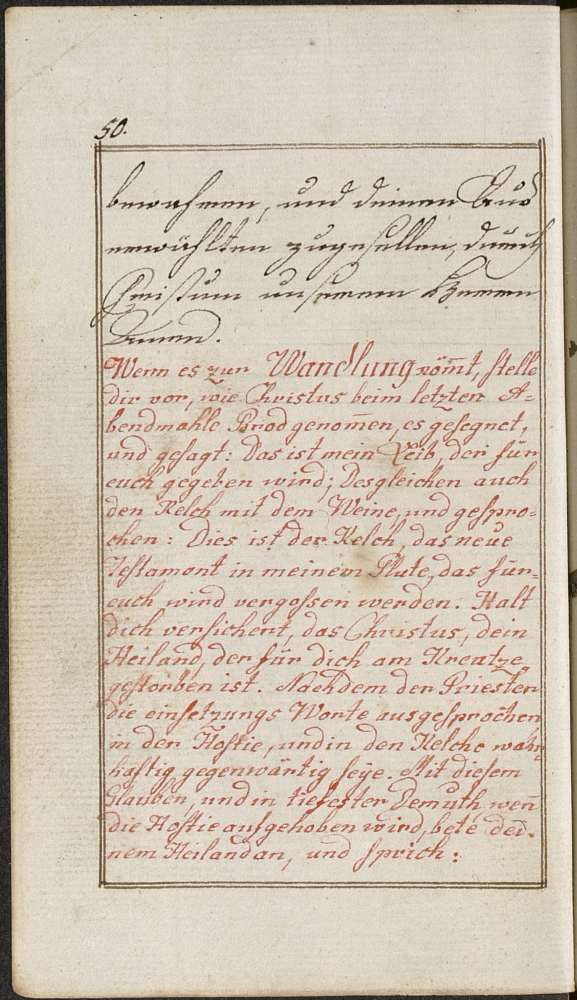 50.
bewahren, und deinen Aus
erwählten zugesellen, durch
Christum unseren Herren
Amen.
Wenn es zur Wandlung kom̄t, stelle
dir vor, wie Christus beim letzten A=
bendmahle Brod genom̄en, es gesegnet,
und gesagt: Das ist mein Leib, der für
euch gegeben wird; Desgleichen auch
den Kelch mit dem Weine, und gespro=
chen: Dies ist der Kelch, das neue
Testament in meinem Blute, das für=
euch wird vergossen werden. Halt
dich versichert, das Christus, dein
Heiland, der für dich am Kreutze
gestorben ist. Nachdem der Priester
die einsetzungs Worte ausgesprochen
in der Hostie, und in den Kelche wahr
haftig gegenwärtig seye. Mit diesem
Glauben, und in tiefester Demuth wen̄
die Hostie aufgehoben wird, bete dei=
nem Heiland an, und sprich: